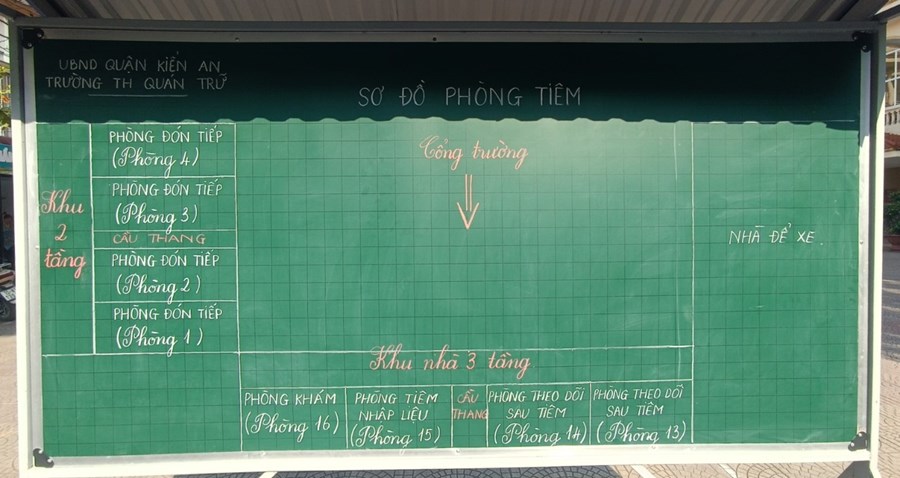 UBND QUẬN KIẾN AN
TRƯỜNG TH QUÁN TRỮ
SƠ ĐỒ PHÒNG TIÊM
Cổng trường
Khu
2
tầng
PHÒNG ĐÓN TIẾP
(Phòng 4)
PHÒNG ĐÓN TIẾP
(Phòng 3)
CẦU THANG
PHÒNG ĐÓN TIẾP
(Phòng 2)
PHÒNG ĐÓN TIẾP
(Phòng 1)
NHÀ ĐỂ XE.
Khu nhà 3 tầng
PHÒNG KHÁM
(Phòng 16)
PHÒNG TIÊM
NHẬP LIỆU
(Phòng 15)
CẦU
THANG
PHÒNG THEO DÕI
SAU TIÊM
(Phòng 14)
PHÒNG THEO DÕI
SAU TIÊM
(Phòng 13)